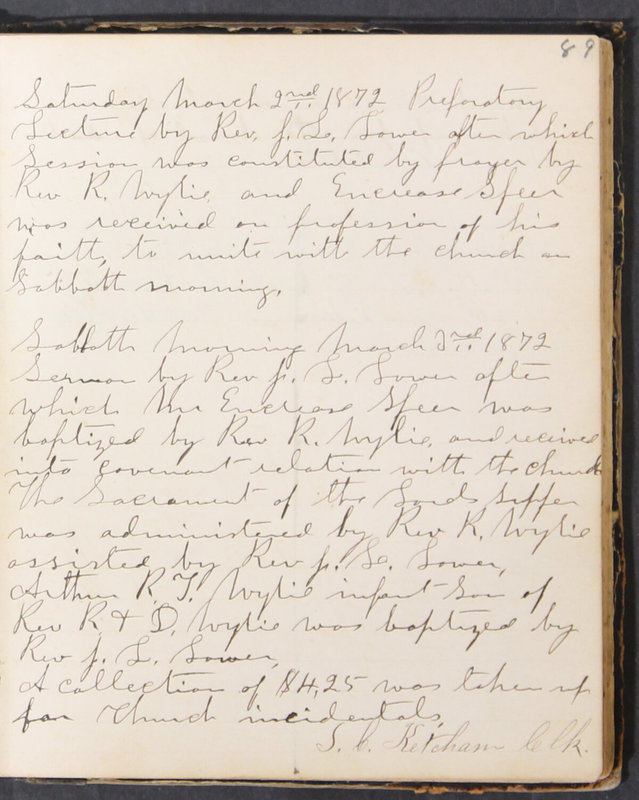 89
Saturday March 2nd 1872 Preforatory
Lecture by Rev. J. L. Lower after which
Session was constituted by prayer by
Rev R. Wylie and Encrease Speer
was received on profession of his
faith, to unite with the church on
Sabbath morning.
Sabbath Morning March 3rd 1872
Sermon by Rev J. L. Lower after
which Mr Encrease Speer was
baptized by Rev R. Wylie, and received
into covenant relation with the church
The Sacrament of the Lords Supper
was administered by Rev R. Wylie
assisted by Rev J. L. Lower,
Arthur R. T. Wylie infant Son of
Rev R & D. Wylie was baptized by
Rev J. L. Lower,
A collection of $4,25 was taken up
for Church incidentals,
Ketcham Clk.